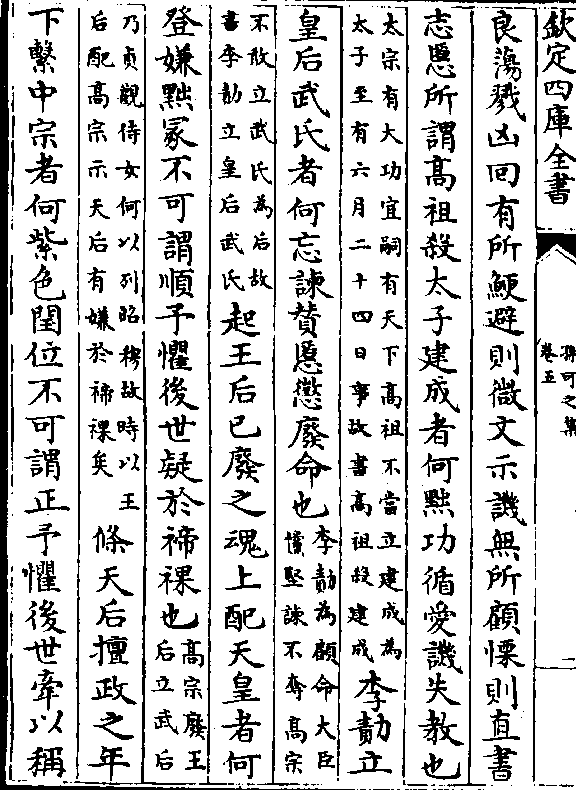 欽定四庫全書
孫可之集
卷五
二
良蕩戮凶回有所鯁避則微文示譏無所顧慄則直書
志慝所謂髙祖殺太子建成者何黜功循愛譏失教也
太宗有大功宜嗣有天下髙祖不當立建成為
太子至有六月二十四日事故書髙祖殺建成
李勣立
皇后武氏者何忘諫贊慝懲廢命也
李勣為顧命大臣
儻堅諫不奪髙宗
不敢立武氏為后故
書李勣立皇后武氏
起王后已廢之魂上配天皇者何
登嫌黜冢不可謂順予懼後世疑於禘祼也
髙宗廢王
后立武后
乃貞觀侍女何以列昭穆故時以王
后配髙宗示天后有嫌於禘祼矣
條天后擅政之年
下繫中宗者何紫色閏位不可謂正予懼後世牽以稱